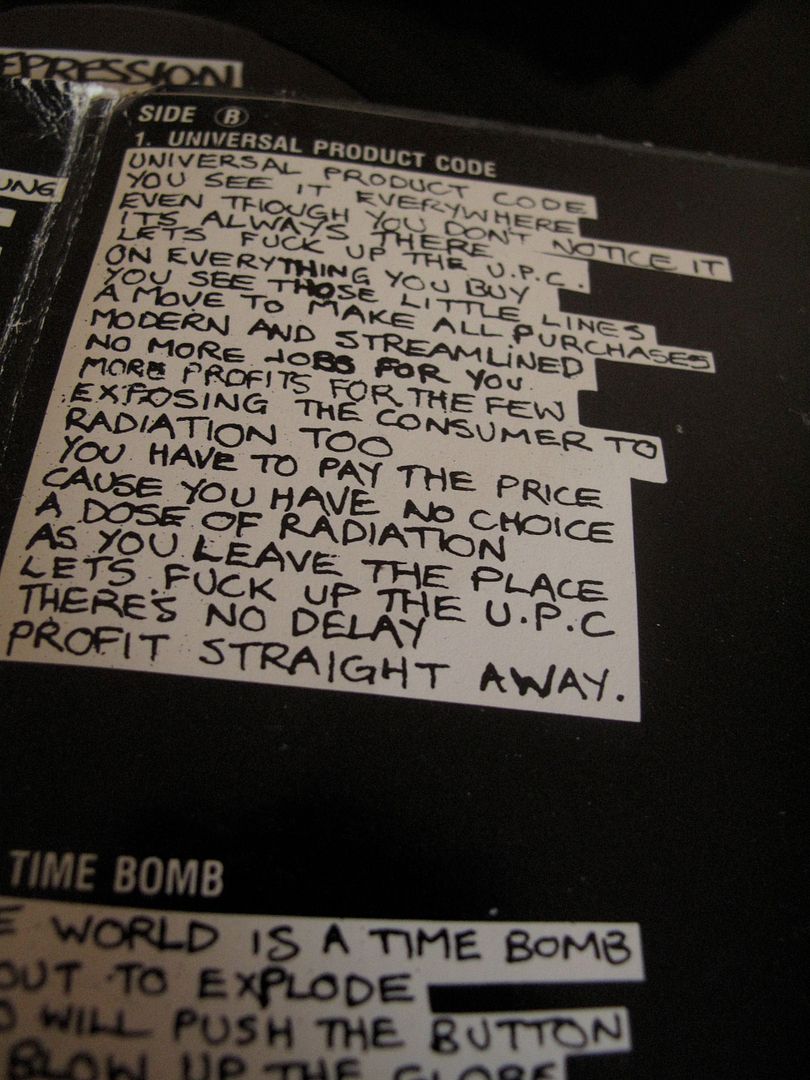 EPRESSION
UNG
SIDE B
1. UNIVERSAL PRODUCT CODE
UNIVERSAL PRODUCT CODE
YOU SEE IT EVERYWHERE
EVEN THOUGH YOU DON'T NOTICE IT
IT'S ALWAYS THERE
LETS FUCK UP THE U.P.C.
ON EVERYTHING YOU BUY
YOU SEE THOSE LITTLE LINES
A MOVE TO MAKE ALL PURCHASES
MODERN AND STREAMLINED
NO MORE JOBS FOR YOU
MORE PROFITS FOR THE FEW
EXPOSING THE CONSUMER TO
RADIATION TOO
YOU HAVE TO PAY THE PRICE
CAUSE YOU HAVE NO CHOICE
A DOSE OF RADIATION
AS YOU LEAVE THE PLACE
LETS FUCK UP THE U.P.C
THERE'S NO DELAY
PROFIT STRAIGHT AWAY.
TIME BOMB
E WORLD IS A TIME BOMB
OUT TO EXPLODE
O WILL PUSH THE BUTTON
BLOW UP THE GLOBE